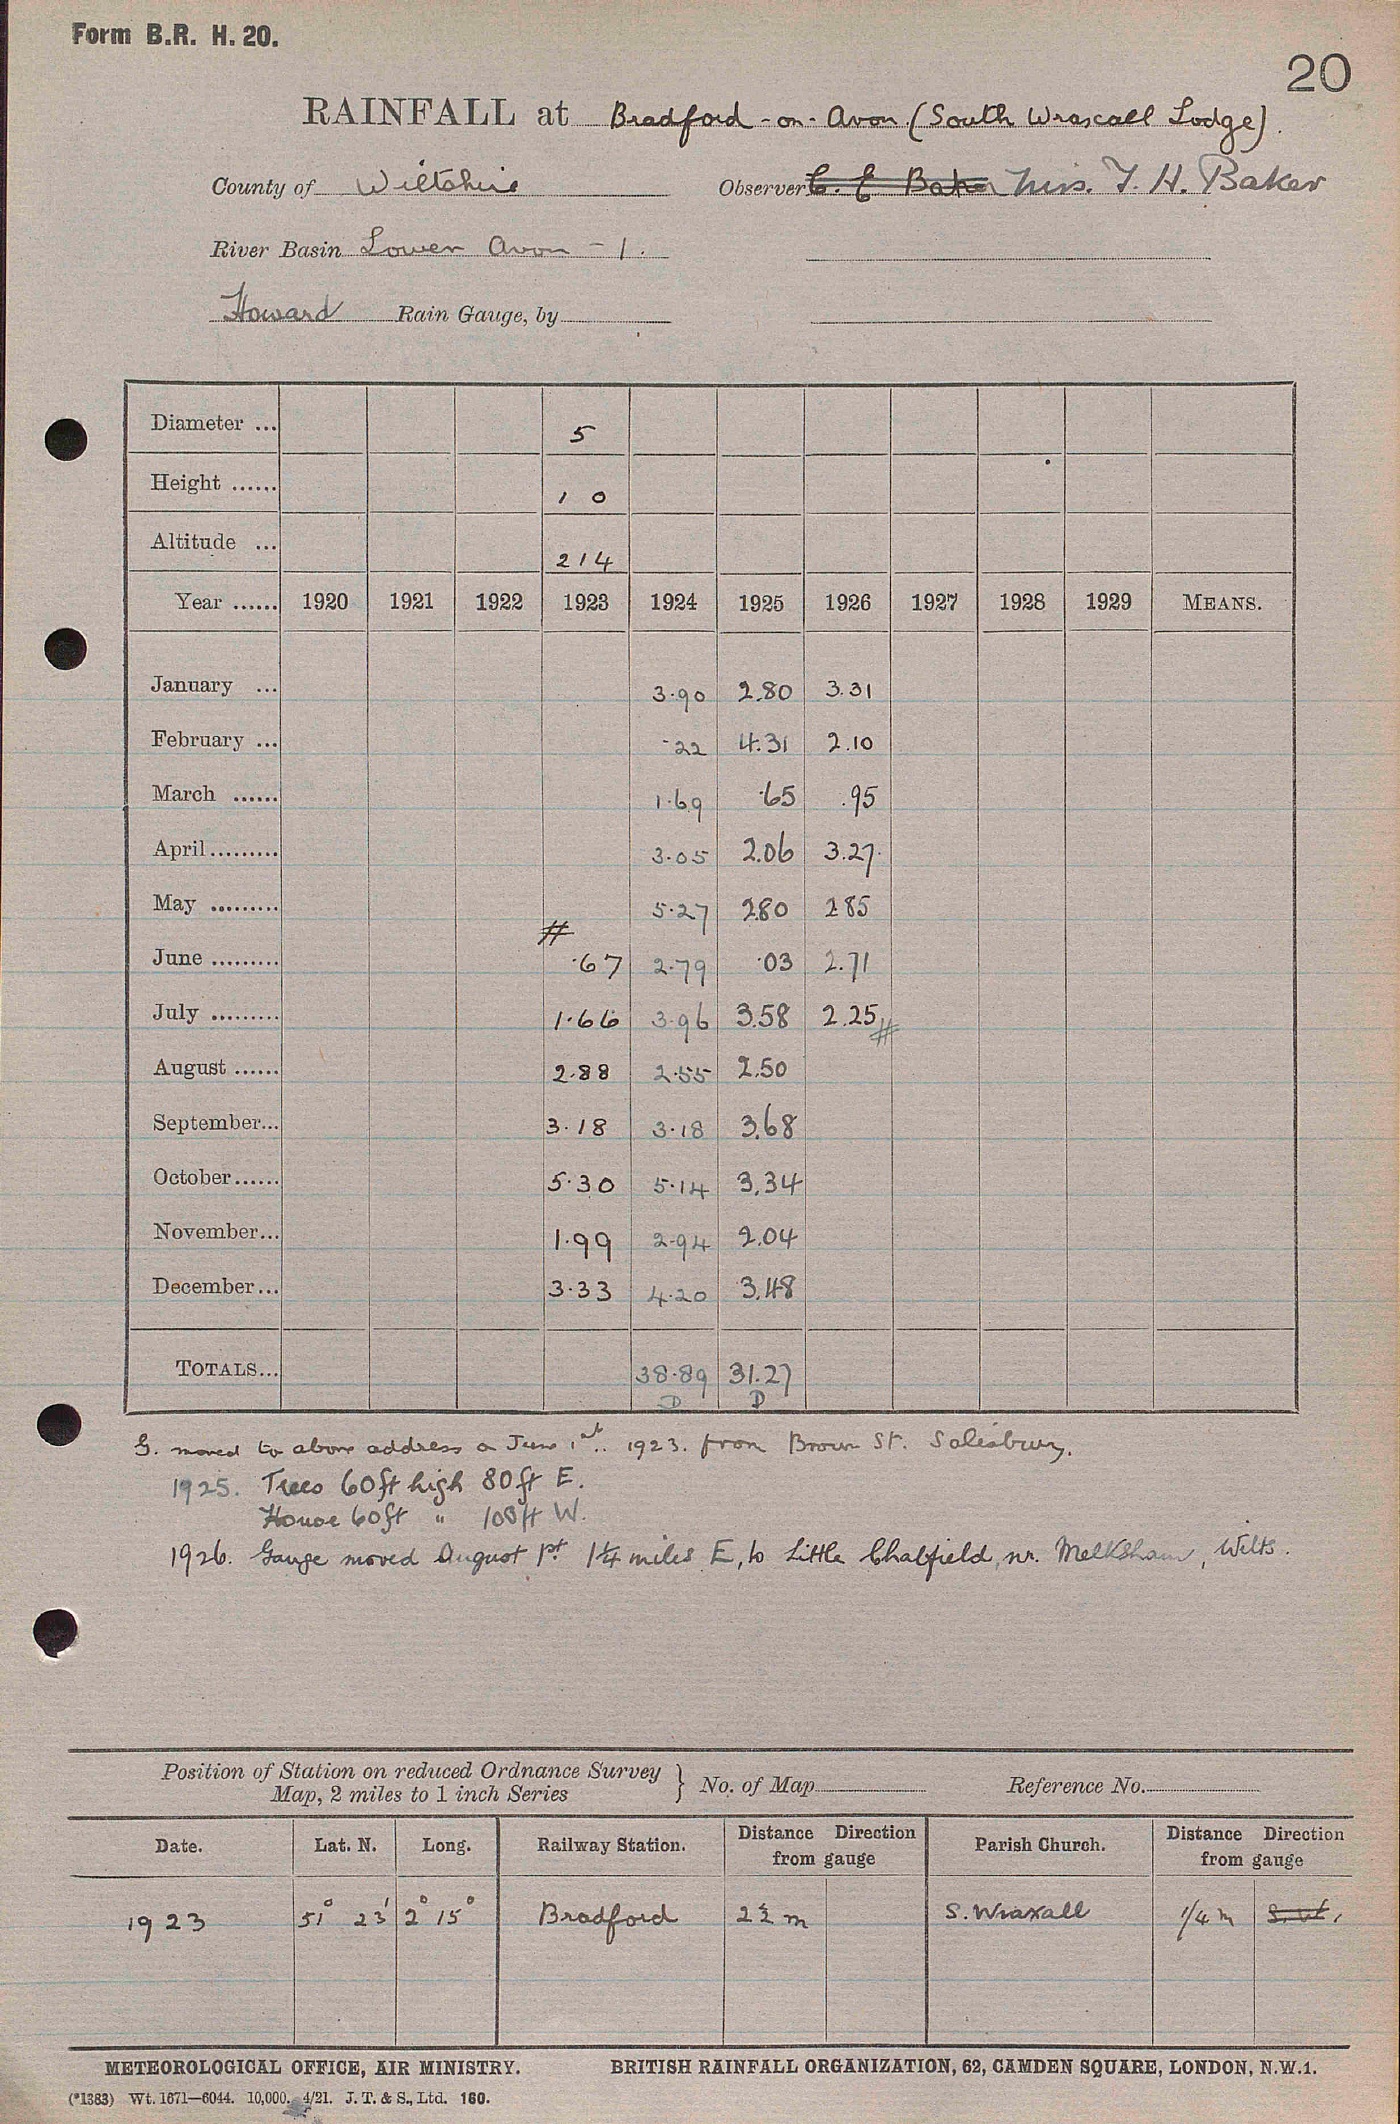 Form B.R. H. 20.
20
RAINFALL at Bradford-on-Avon (South Wraxall Lodge).
County of Wiltshire Observer C. E Baker Mrs. T. H. Baker
River Basin Lower Avon - 1.
Howard Rain Gauge, by
Diameter ... 5
Height ...... 1 0
Altitude ... 214
Year ...... 1920 1921 1922 1923 1924 1925 1926 1927 1928 1929 MEANS.
January ... 3.90 2.80 3.31
February ... .22 4.31 2.10
March ...... 1.69 .65 .95
April......... 3.05 2.06 3.27
May ......... 5.27 2.80 2.85
#
June ......... .67 2.79 .03 2.71
July ......... 1.66 3.96 3.58 2.25 #
August ...... 2.88 2.55 2.50
September... 3.18 3.18 3.68
October...... 5.30 5.14 3.34
November... 1.99 2.94 2.04
December... 3.33 4.20 3.48
TOTALS... 38.89 31.27
D D
G. moved to above address on June 1st. 1923. from Brown St. Salisbury.
1925. Trees 60ft high 80ft E.
House 60ft " 100ft W.
1926. Gauge moved August 1st 1¼ miles E, to Little Chalfield, nr. Melksham, Wilts.
Position of Station on reduced Ordnance Survey Map, 2 miles to 1 inch Series } No. of Map Reference No.
Date. Lat. N. Long. Railway Station. Distance Direction from gauge Parish Church. Distance Direction from gauge
1923 51° 23' 2° 15° Bradford 2½ m S. Wraxall 1/4 m
METEOROLOGICAL OFFICE, AIR MINISTRY. BRITISH RAINFALL ORGANIZATION, 62, CAMDEN SQUARE, LONDON, N.W.1.
(*1383) Wt. 1671—6044. 10,000. 4/21. J. T. & S., Ltd. 160.